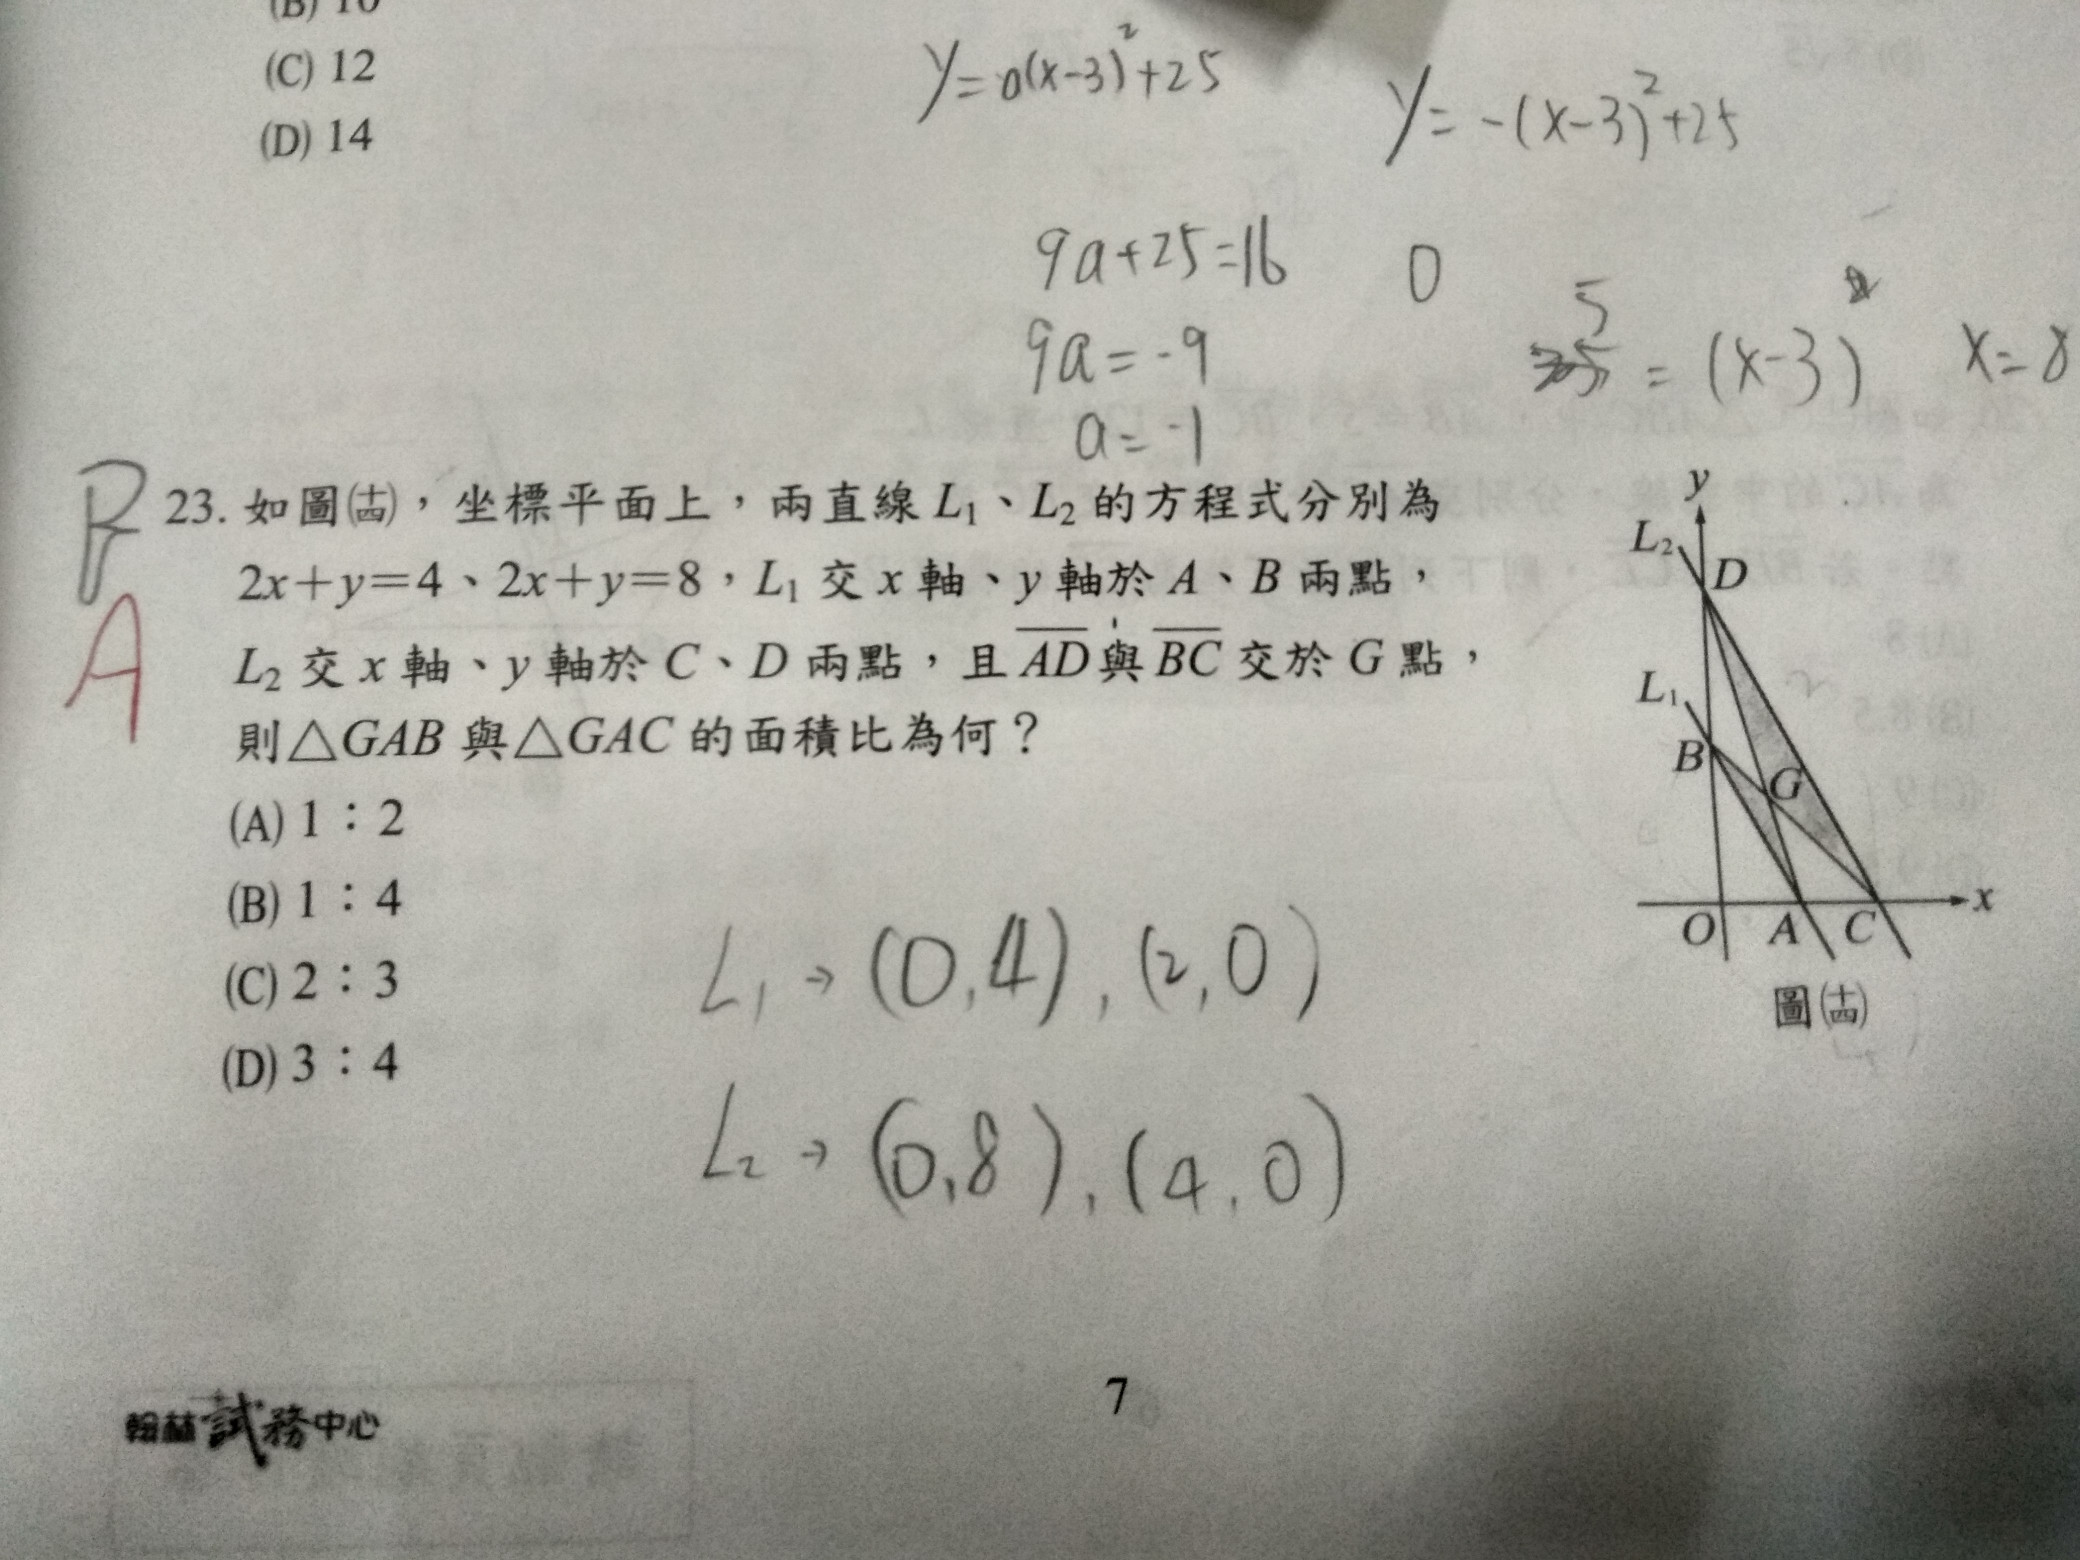 (B) 10
(C) 12
(D) 14
y=a(x-3)²+25
y=-(x-3)²+25
9a+25=16
0
9a=-9
5
=(x-3)
x=8
a=-1
B
A
23. 如圖(十四)，坐標平面上，兩直線 L₁、L₂ 的方程式分別為
2x+y=4、2x+y=8，L₁ 交 x 軸、y 軸於 A、B 兩點，
L₂ 交 x 軸、y 軸於 C、D 兩點，且 A̅D̅ 與 B̅C̅ 交於 G 點，
則△GAB 與△GAC 的面積比為何？
(A) 1：2
(B) 1：4
(C) 2：3
(D) 3：4
y
L₂
D
L₁
B
G
x
O A C
圖(十四)
L₁→(0,4),(2,0)
L₂→(0,8),(4,0)
翰林試務中心
7